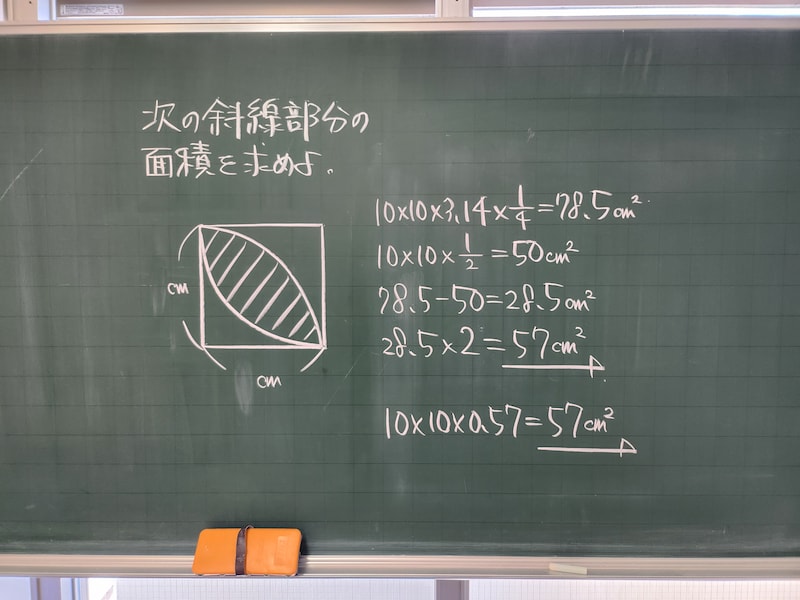 次の斜線部分の
面積を求めよ。
10×10×3.14×1/4=78.5cm²
10×10×1/2=50cm²
78.5-50=28.5cm²
28.5×2=57cm²
10×10×0.57=57cm²
cm
cm